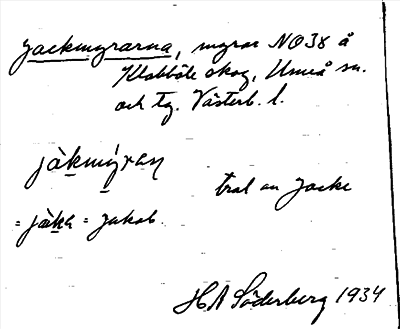 Jackmyrarna, myrar NO38 å
Klabböle skog, Umeå sn.
och tg. Västerb. l.
jàkmýran
tral av Jacke
= jàka = Jakob.
H A Söderberg 1934